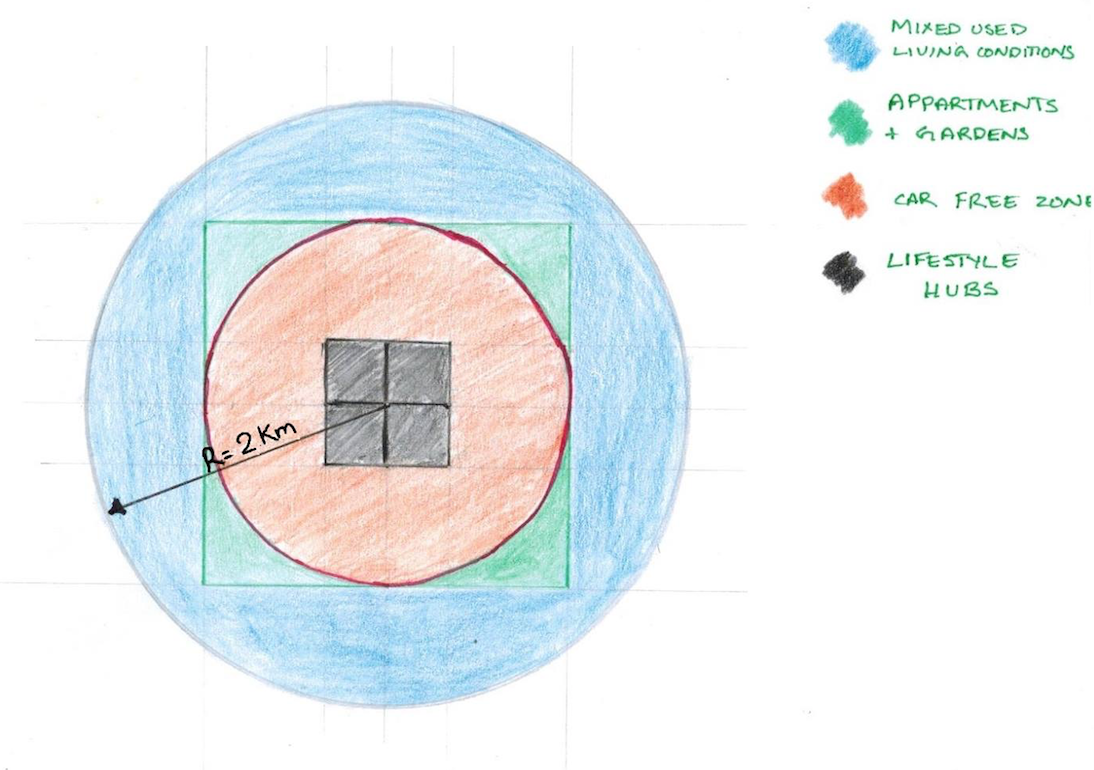 MIXED USED
LIVING CONDITIONS
APPARTMENTS
+ GARDENS
CAR FREE ZONE
LIFESTYLE
HUBS
R=2Km